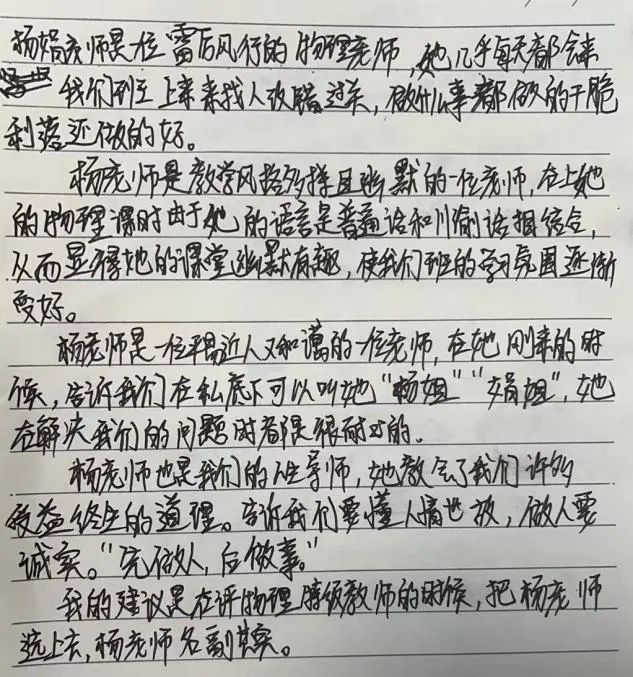 杨娟老师是一位雷厉风行的物理老师,她几乎每天都会来
我们班上来来找人改错过关,做什么事都做的干脆
利落还做的好。
杨老师是教学风格多样且幽默的一位老师,在上她
的物理课时由于她的语言是普通话和川渝话相结合,
从而显得她的课堂幽默有趣,使我们班的学习氛围逐渐
变好。
杨老师是一位平易近人又和蔼的一位老师,在她刚来的时
候,告诉我们在私底下可以叫她“杨姐”“娟姐”,她
在解决我们的问题时都是很耐心的。
杨老师也是我们的人生导师,她教会了我们许多
受益终生的道理。告诉我们要懂人情世故,做人要
诚实。“先做人,后做事。”
我的建议是在评物理特级教师的时候,把杨老师
选上去,杨老师名副其实。